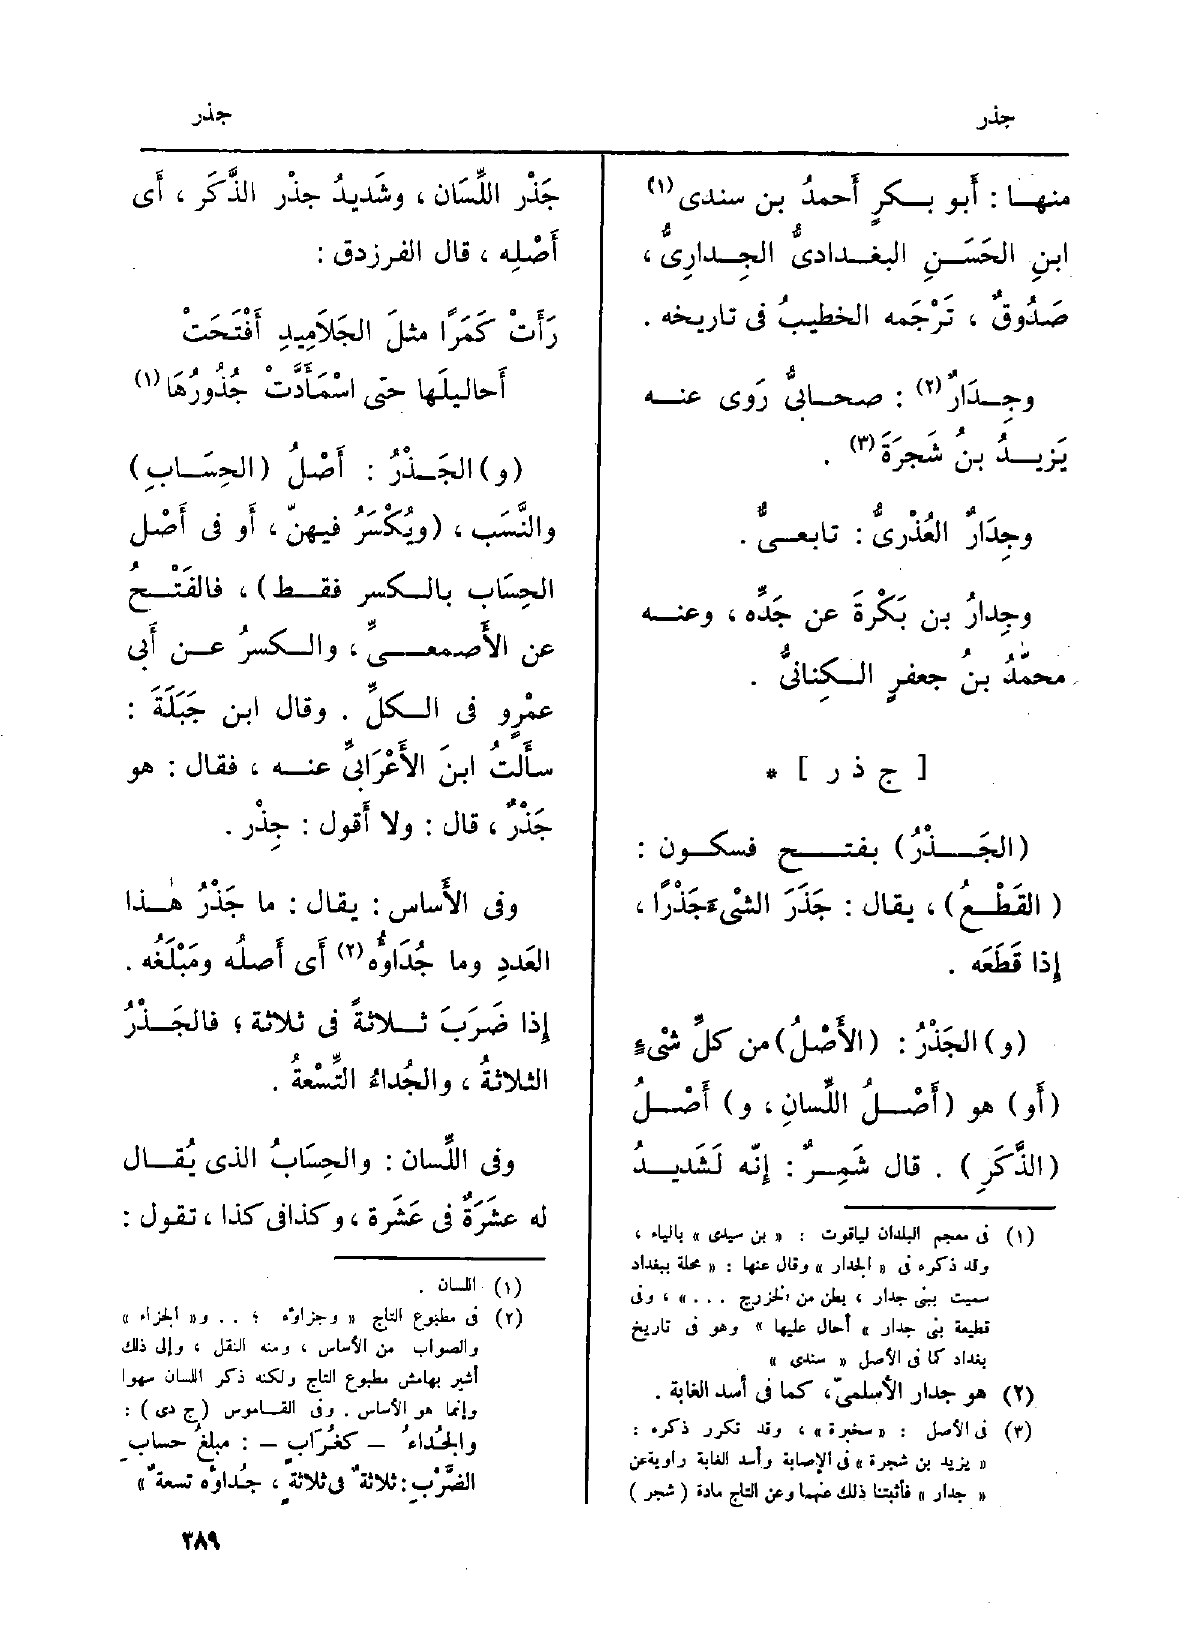 جذر
جذر
منهـا : أَبو بـكرٍ أَحمدُ بن سندى (١)
ابنِ الحَسَـنِ البغـدادىُّ الجِـدارىُّ ،
صَدُوقٌ ، تَرْجَمه الخطيبُ فى تاريخه .
وجِـدَارٌ (٢) : صحـابىُّ رَوى عنـه
يَزيـدُ بنُ شَجرَةَ (٣) .
وجِدَارٌ العُذْرىُّ : تابعـىُّ .
وجِدارُ بن بَكْرَةَ عن جَدِّه ، وعنـه
محمّدُ بنُ جعفرٍ الـكِنانىُّ .
[ ج ذ ر ] *
(الجَـــذْرُ) بفتـــح فسكـون :
( القَطْـعُ ) ، يقال : جَذَرَ الشىءَ جَذْرًا ،
إِذا قَطَعَه .
(و) الجَذْرُ : (الأَصْلُ) من كلِّ شىْءٍ
(أَو) هو (أَصْـلُ اللِّسانِ ، و) أَصْـلُ
(الذَّكَرِ ) . قال شَمِـرٌ : إِنّه لَشَديـدُ
(١) فى معجم البلدان لياقوت : « بن سيدى » بالياء ،
وقد ذكره فى « الجدار » وقال عنها : « محلة ببغداد
سميت ببنى جدار ، بطن من الخزرج . . . » ، وفى
قطيعة بنى جدار » أحال عليها » وهو فى تاريخ
بغداد كما فى الأصل « سندى »
(٢) هو جدار الأسلمىّ، كما فى أسد الغابة .
(٣) فى الأصل : « سخبرة » ، وقد تكرر ذكره :
« يزيد بن شجرة » فى الإصابة وأسد الغابة راوية عن
« جدار » فأثبتنا ذلك عنهما وعن التاج مادة ( شجر )
جَذْر اللِّسَان ، وشَديدُ جذْر الذَّكَر ، أَى
أَصْلِه ، قال الفرزدق :
رَأَتْ كَمَرًا مثلَ الجَلاَمِيدِ أَفْتَحَتْ
أَحاليلَها حتى اسْمَأَدَّتْ جُذُورُهَا (١)
(و) الجَـذْرُ : أَصْلُ (الحِسَـابِ)
والنَّسَب ، (ويُكْسَرُ فيهنّ ، أَو فى أَصْل
الحِسَاب بالـكسر فقـط) ، فالفَتْـحُ
عن الأَصمعـــىِّ ، والـكسرُ عـن أَبى
عمْرٍو فى الـكلِّ . وقال ابن جَبَلَةَ :
سأَلتُ ابنَ الأَعْرَابىِّ عنـه ، فقال : هو
جَذْرٌ ، قال : ولا أَقول : جِذْر .
وفى الأَساس : يقال : ما جَذْرُ هٰـذا
العَددِ وما جُدَاوُّه (٢) أَى أَصلُه ومَبْلَغُه .
إِذا ضَرَبَ ثـلاثةً فى ثلاثة ؛ فالجَـذْرُ
الثلاثةُ ، والجُداءُ التِّسْعةُ .
وفى اللِّسَان : والحِسَابُ الذى يُقـال
له عشَرَةٌ فى عَشَرة ، وكذا فى كذا ، تقول :
(١) اللسان .
(٢) فى مطبوع التاج « وجزاؤه ؛ . . و« الجزاء »
والصواب من الأساس ، ومنه النقل ، وإلى ذلك
أشير بهامش مطبوع التاج ولكنه ذكر اللسان سهوا
وإنما هو الأساس . وفى القـاموس (ج دى) :
والجُداءُ – كغُرَابٍ – : مبلغُ حسابِ
الضَّرْبِ : ثلاثةٌ فى ثلاثةٍ ، جُداوُه تسعةٌ »
٣٨٩